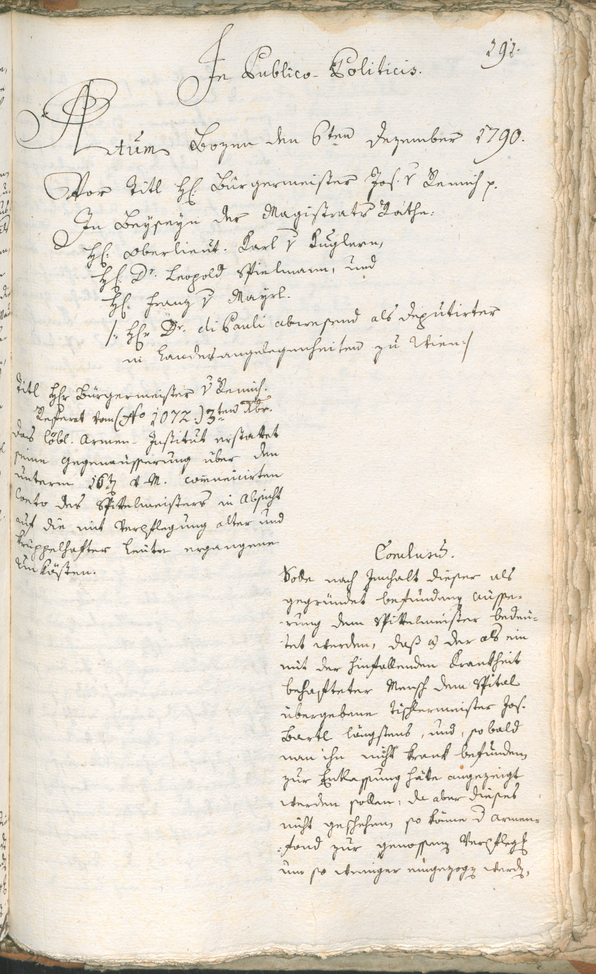 291.
In Publico-Politicis.
Actum Bozen den 6ten Dezember 1790.
Vor Titl H: Bürgermeister Jos: v Remich p.
In Beyseyn der Magistrats Räthe:
H: Oberlieut. Karl v Kuglern,
H: Dr. Leopold Spielmann, und
H: Franz v Mayrl.
/: Hr Dr. di Pauli abwesend als deputirter
in Landesangelegenheiten zu Wien :/
Titl Hr Bürgermeister v Remich.
Referat vom (No 1072.) 3ten Xbr.
das löbl. Armen-Institut erstattet
seine Gegenäusserung über den
unterm 16ten v. M. communicirten
Conto des Spitelmeisters in Absicht
auf die mit Verpflegung alter und
krüppelhafter Leute ergangene
Unkösten.
Conclusum.
Solle nach Innhalt dieser als
gegründet befundenen Äusse-
rung dem Spittelmeister bedeu-
tet werden, daß der als ein
mit der hinfallenden Krankheit
behafteter Mensch dem Spital
übergebene Tischlermeister Jos:
Bartl längstens, und, sobald
man ihn nicht krank befunden,
zur Entlassung hätte angezeigt
werden sollen; da aber dieses
nicht geschehen, so könne d Armen-
fond zur genossenen Verpflegs
um so weniger eingezogen werden,